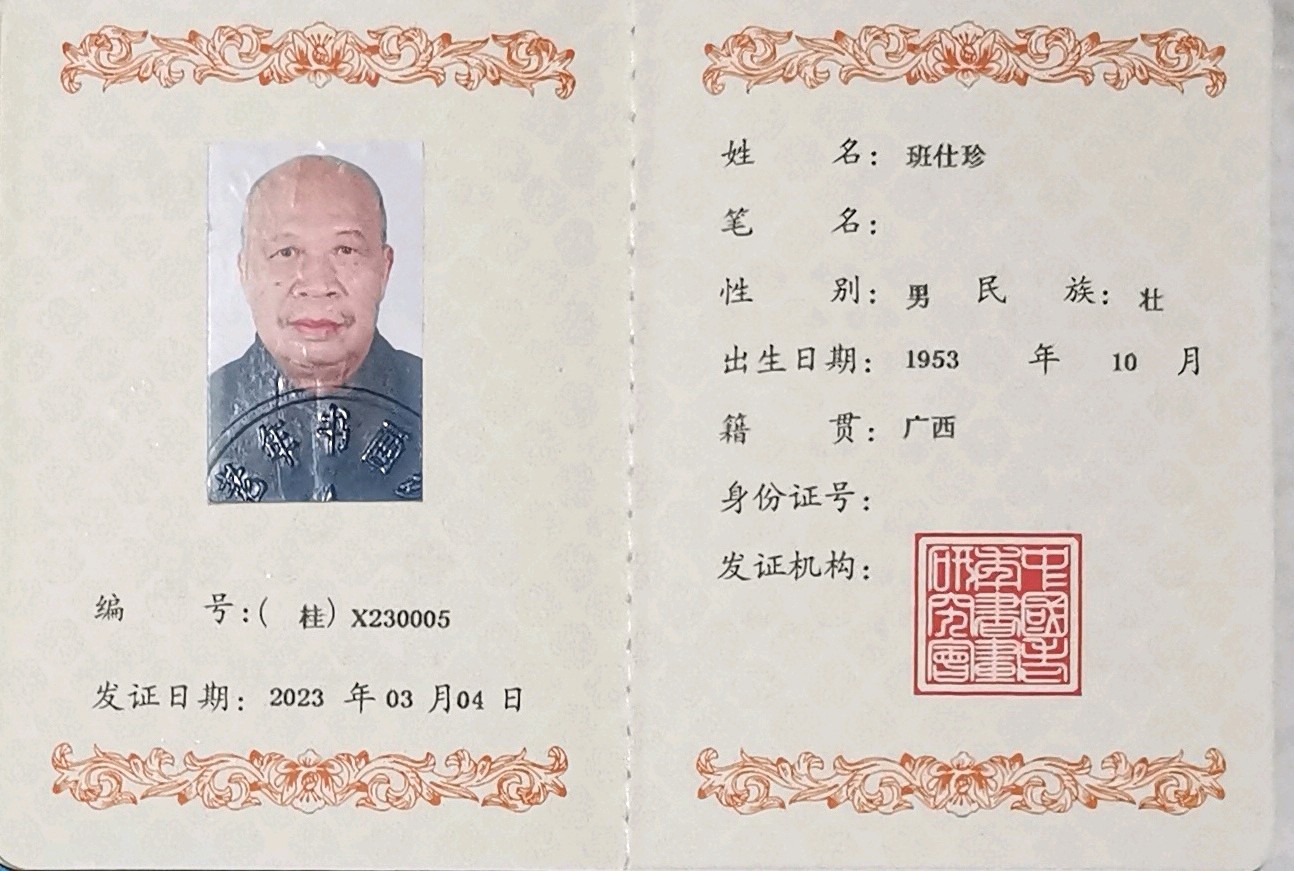 老年书画
编 号:( 桂) X230005
发证日期: 2023 年 03 月04 日
姓 名: 班仕珍
笔 名:
性 别: 男 民 族: 壮
出生日期: 1953 年 10 月
籍 贯: 广西
身份证号:
发证机构:
中國老
年書畫
研究會